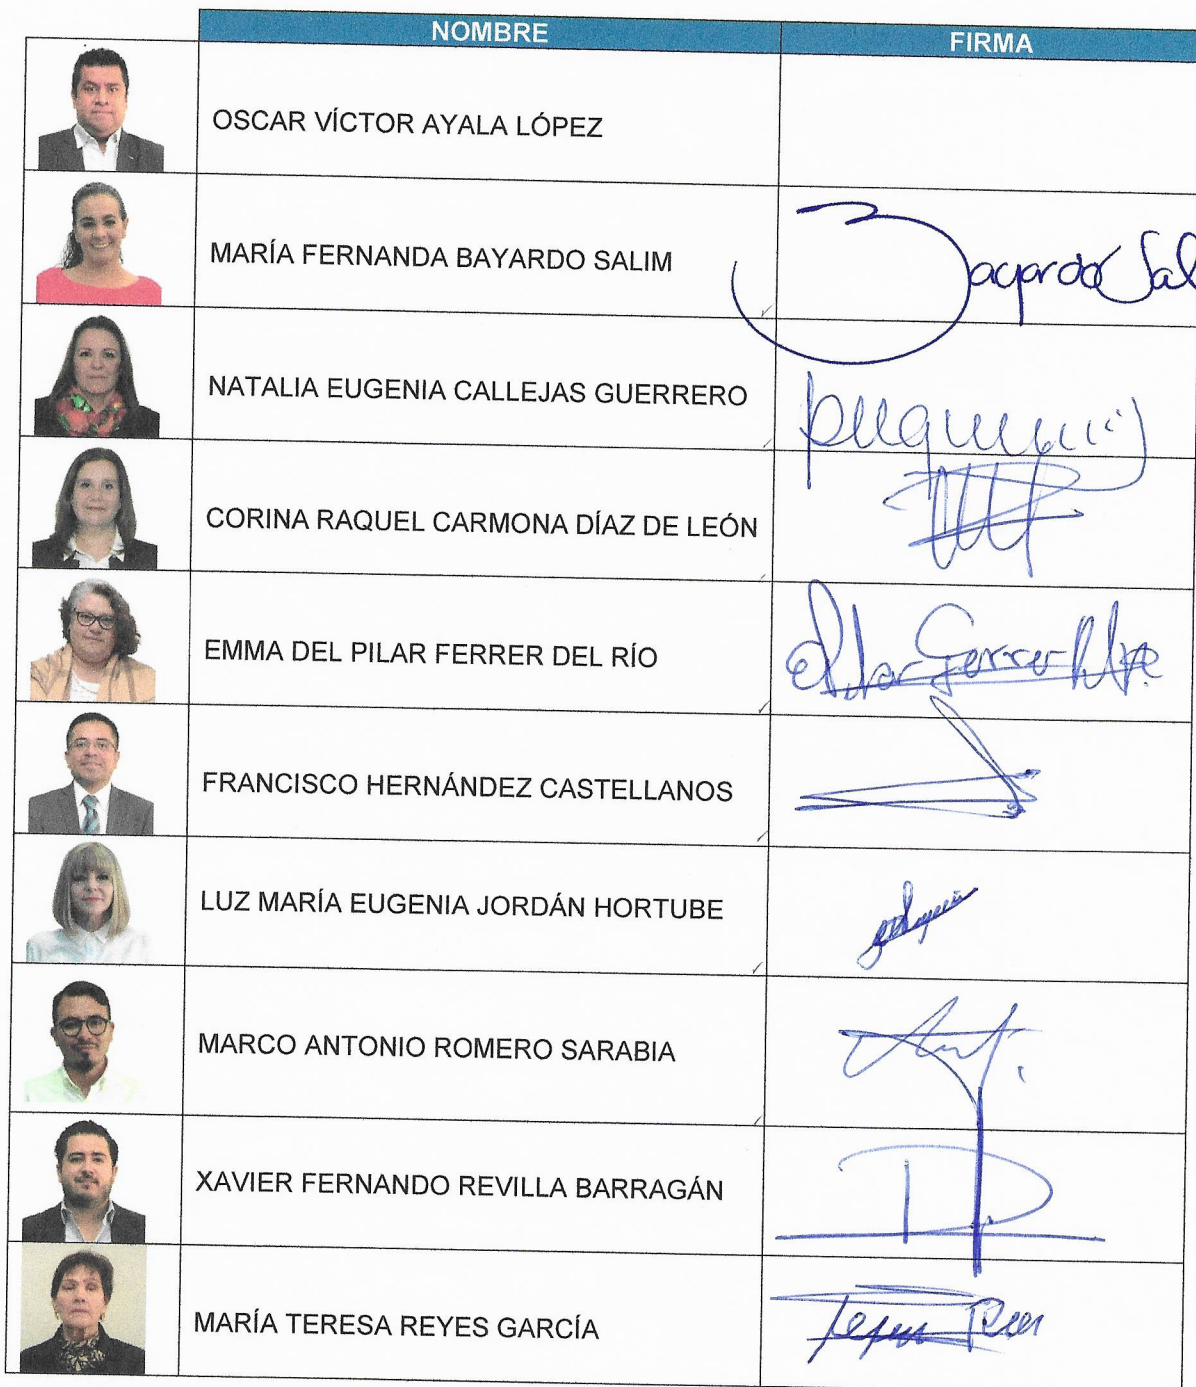 NOMBRE FIRMA
OSCAR VÍCTOR AYALA LÓPEZ
MARÍA FERNANDA BAYARDO SALIM Bayardo Sal
NATALIA EUGENIA CALLEJAS GUERRERO
CORINA RAQUEL CARMONA DÍAZ DE LEÓN
EMMA DEL PILAR FERRER DEL RÍO Pilar Ferrer
FRANCISCO HERNÁNDEZ CASTELLANOS
LUZ MARÍA EUGENIA JORDÁN HORTUBE
MARCO ANTONIO ROMERO SARABIA
XAVIER FERNANDO REVILLA BARRAGÁN
MARÍA TERESA REYES GARCÍA